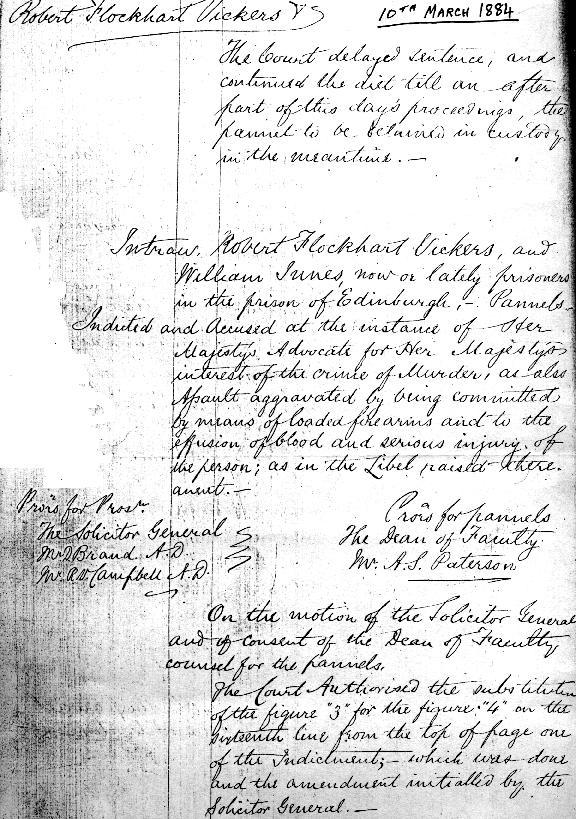 Robert Flockhart Vickers &
10TH MARCH 1884
The Court delayed sentence, and
continued the diet till an after
part of this day's proceedings, the
pannel to be detained in custody
in the meantime. —
Intran. Robert Flockhart Vickers, and
William Innes, now or lately prisoners
in the prison of Edinburgh, - Pannels -
Indicted and Accused at the instance of Her
Majesty's Advocate for Her Majesty's
interest of the crime of Murder; as also
Assault aggravated by being committed
by means of loaded firearms and to the
effusion of blood and serious injury of
the person; as in the Libel raised there-
anent. —
Prors for Prosr.
The Solicitor General
Mr Brand A.D.
Mr. R.V. Campbell A.D.
Prors for pannels
The Dean of Faculty
Mr. A. S. Paterson
On the motion of the Solicitor General
and of consent of the Dean of Faculty,
counsel for the pannels.
The Court Authorised the substitution
of the figure "3" for the figure "4" on the
sixteenth line from the top of page one
of the Indictment; — which was done
and the amendment initialled by the
Solicitor General. —